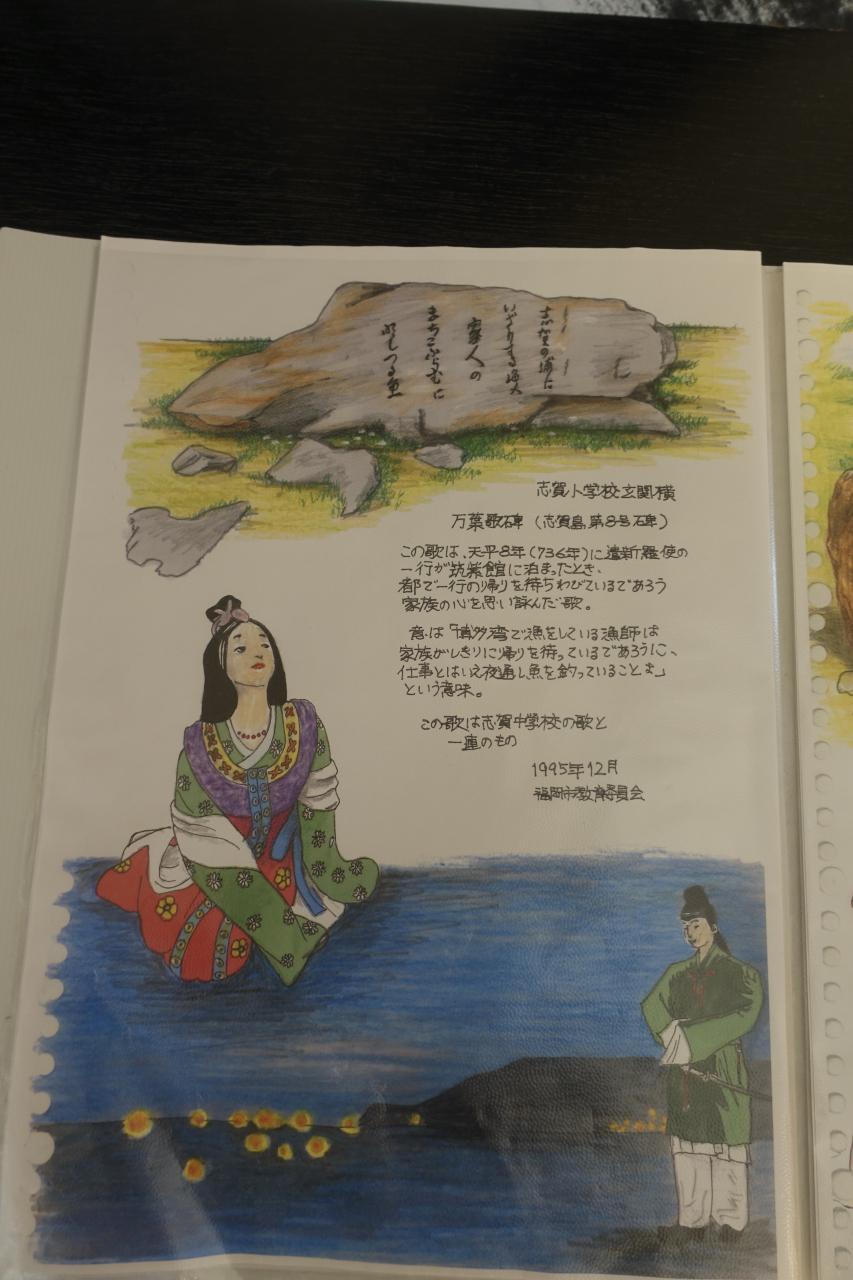 志賀の浦に
いざりする海人
家人の
まちこふらむに
明しつる魚
志賀小学校玄関横
万葉歌碑（志賀島第8号碑）
この歌は、天平8年(736年)に遣新羅使の
一行が筑紫館に泊まったとき、
都で一行の帰りを待ちわびているであろう
家族の心を思い詠んだ歌。
意は「博多湾で漁をしている漁師は
家族がしきりに帰りを待っているであろうに、
仕事とはいえ夜通し魚を釣っていることよ」
という意味。
この歌は志賀中学校の歌と
一連のもの
1995年12月
福岡市教育委員会